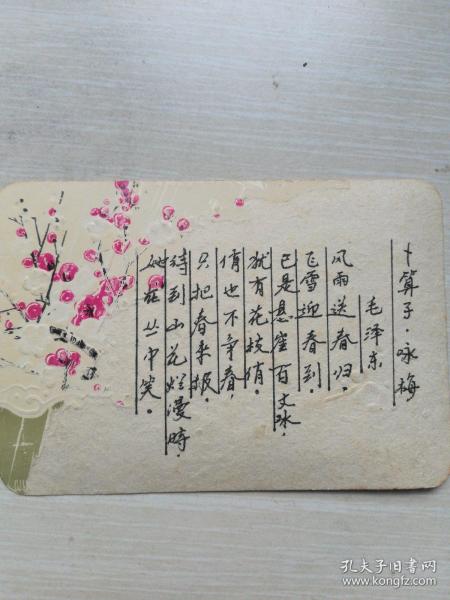 卜算子·咏梅
毛泽东
风雨送春归，
飞雪迎春到。
已是悬崖百丈冰，
犹有花枝俏。
俏也不争春，
只把春来报。
待到山花烂漫時，
她在丛中笑。
孔夫子旧书网
www.kongfz.com